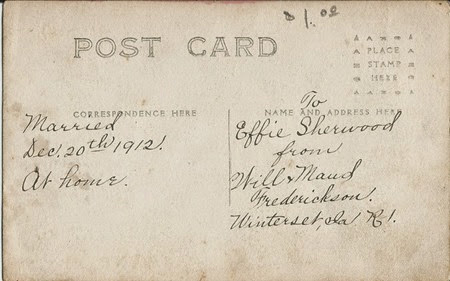 D 1.00
POST CARD
PLACE
STAMP
HERE
CORRESPONDENCE HERE
Married
Dec. 20th 1912.
At home.
NAME AND ADDRESS HERE
To
Effie Sherwood
from
Will & Maud
Frederickson.
Winterset, Ia R1.